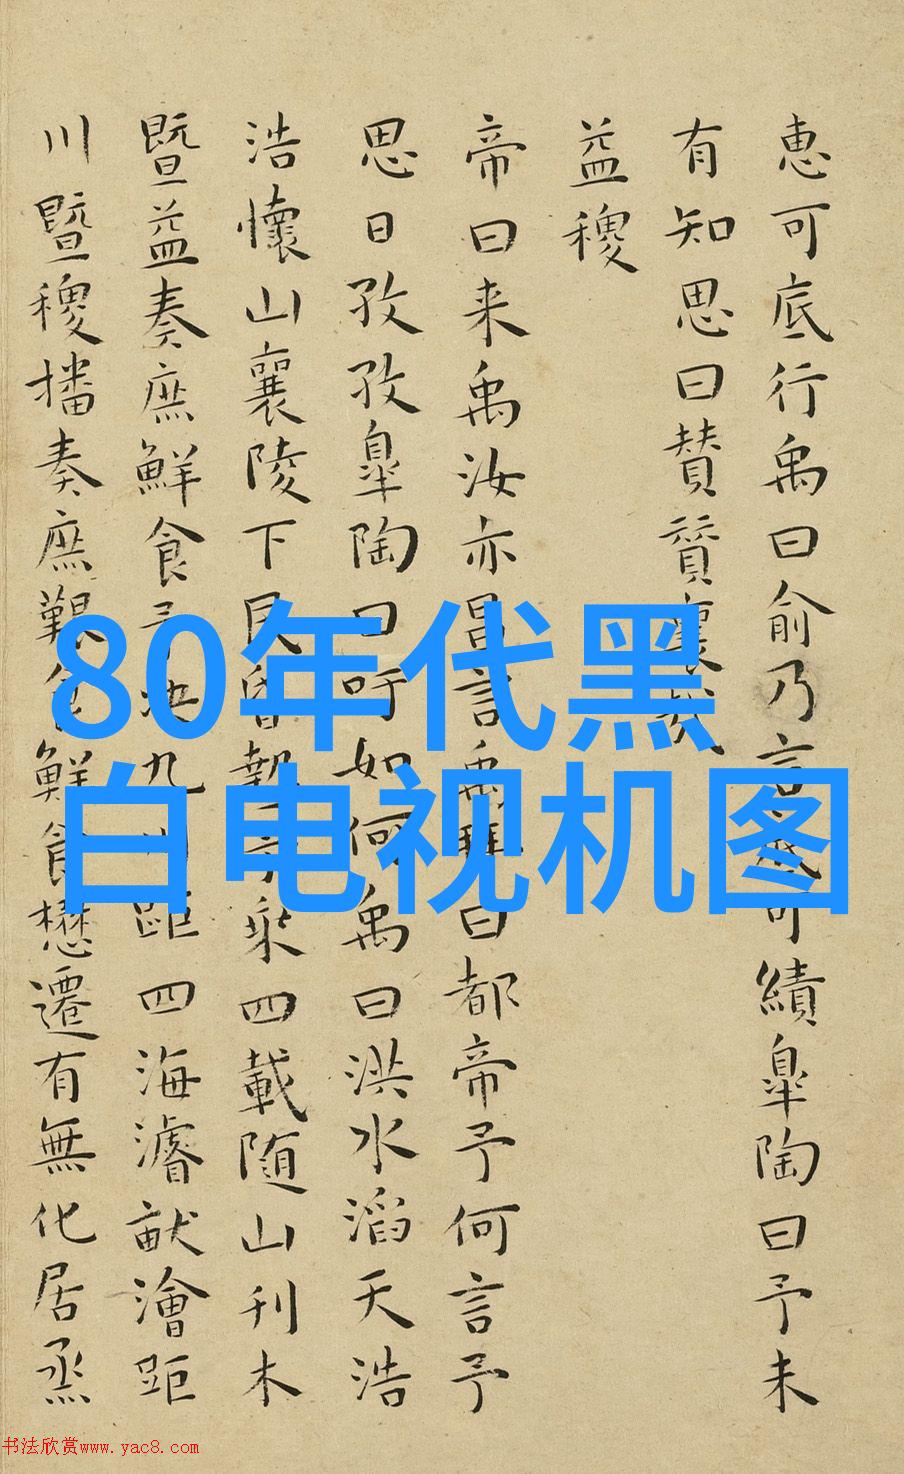 恵可底行禹曰俞乃言底可績皐陶曰予未
有知思曰賛賛襄哉
益稷
帝曰来禹汝亦昌言禹拜曰都帝予何言予
思日孜孜皐陶曰吁如何禹曰洪水滔天浩
浩懷山襄陵下民昬墊予乗四載随山刊木
暨益奏庶鮮食予决九川距四海濬畎澮距
川暨稷播奏庶艱食鮮食懋遷有無化居烝
80年代黑
白电视机图
书法欣赏www.yac8.com